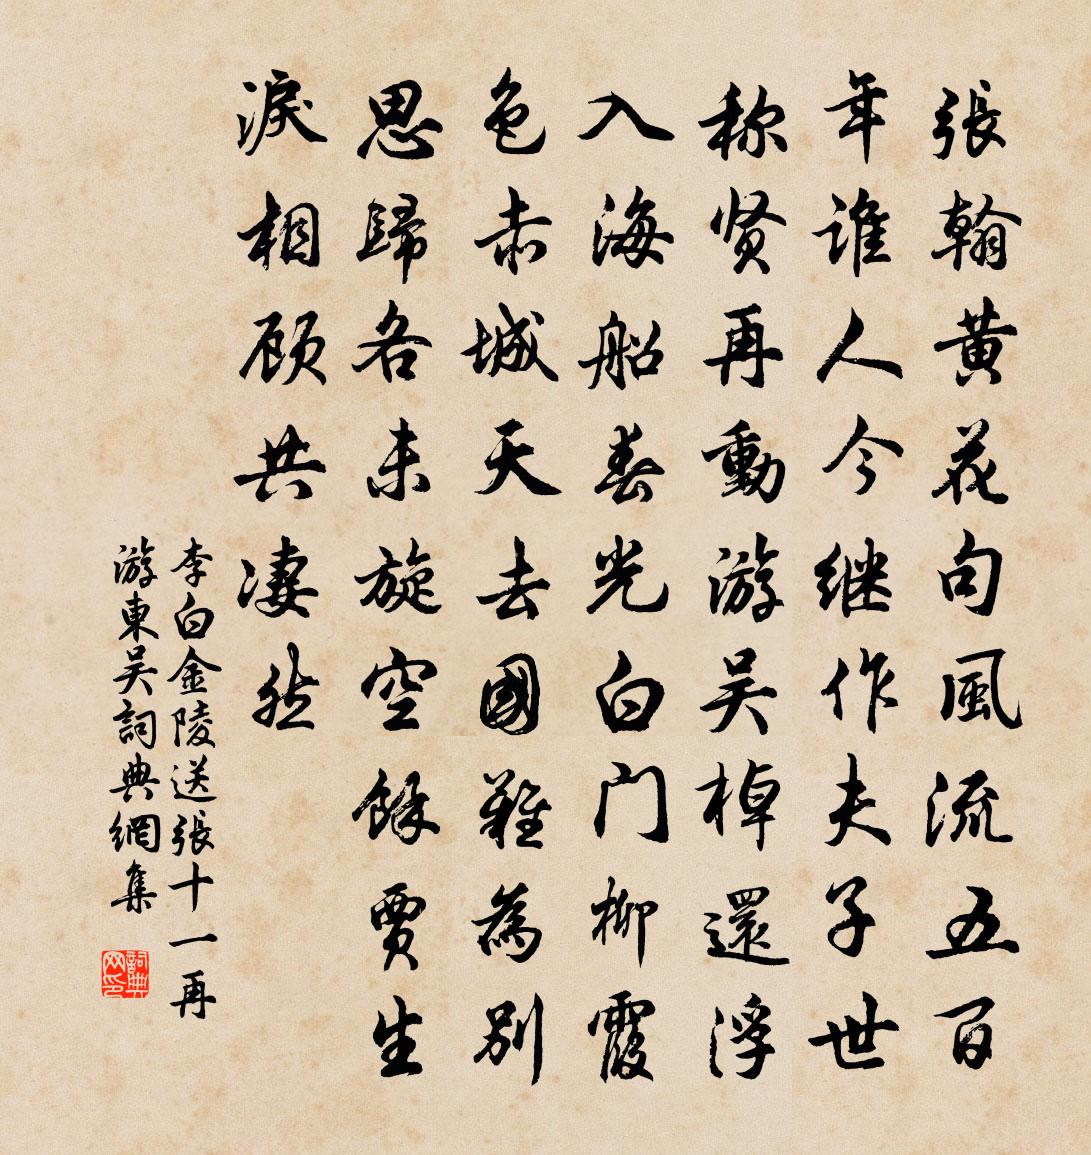 張翰黄花句風流五百
年谁人今继作夫子世
称贤再動游吴棹還浮
入海船春光白门柳霞
色赤城天去國難為别
思歸各未旋空餘賈生
淚相顾共凄然
李白金陵送張十一再
游東吴詞典網集
詞典网印